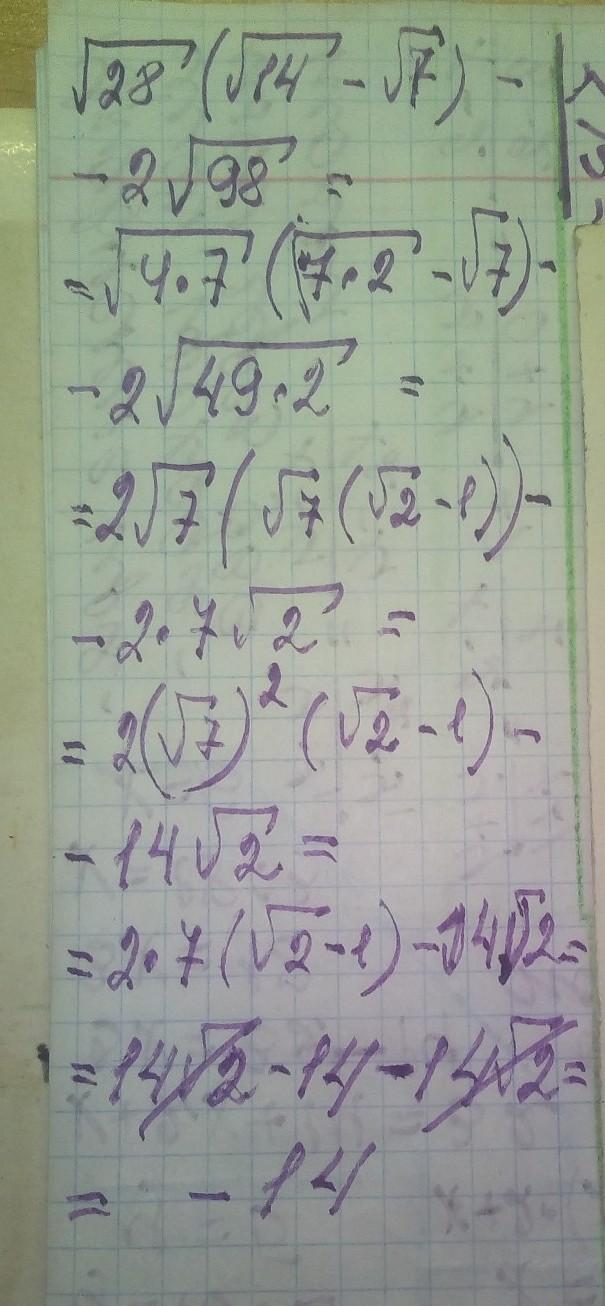 √28 (√14 - √7) -
- 2√98 =
= √4·7 (√7·2 - √7) -
- 2√49·2 =
= 2√7 ( √7 (√2 - 1)) -
- 2·7√2 =
= 2(√7)² (√2 - 1) -
- 14√2 =
= 2·7 (√2 - 1) - 14√2 =
= 14√2 - 14 - 14√2 =
= - 14